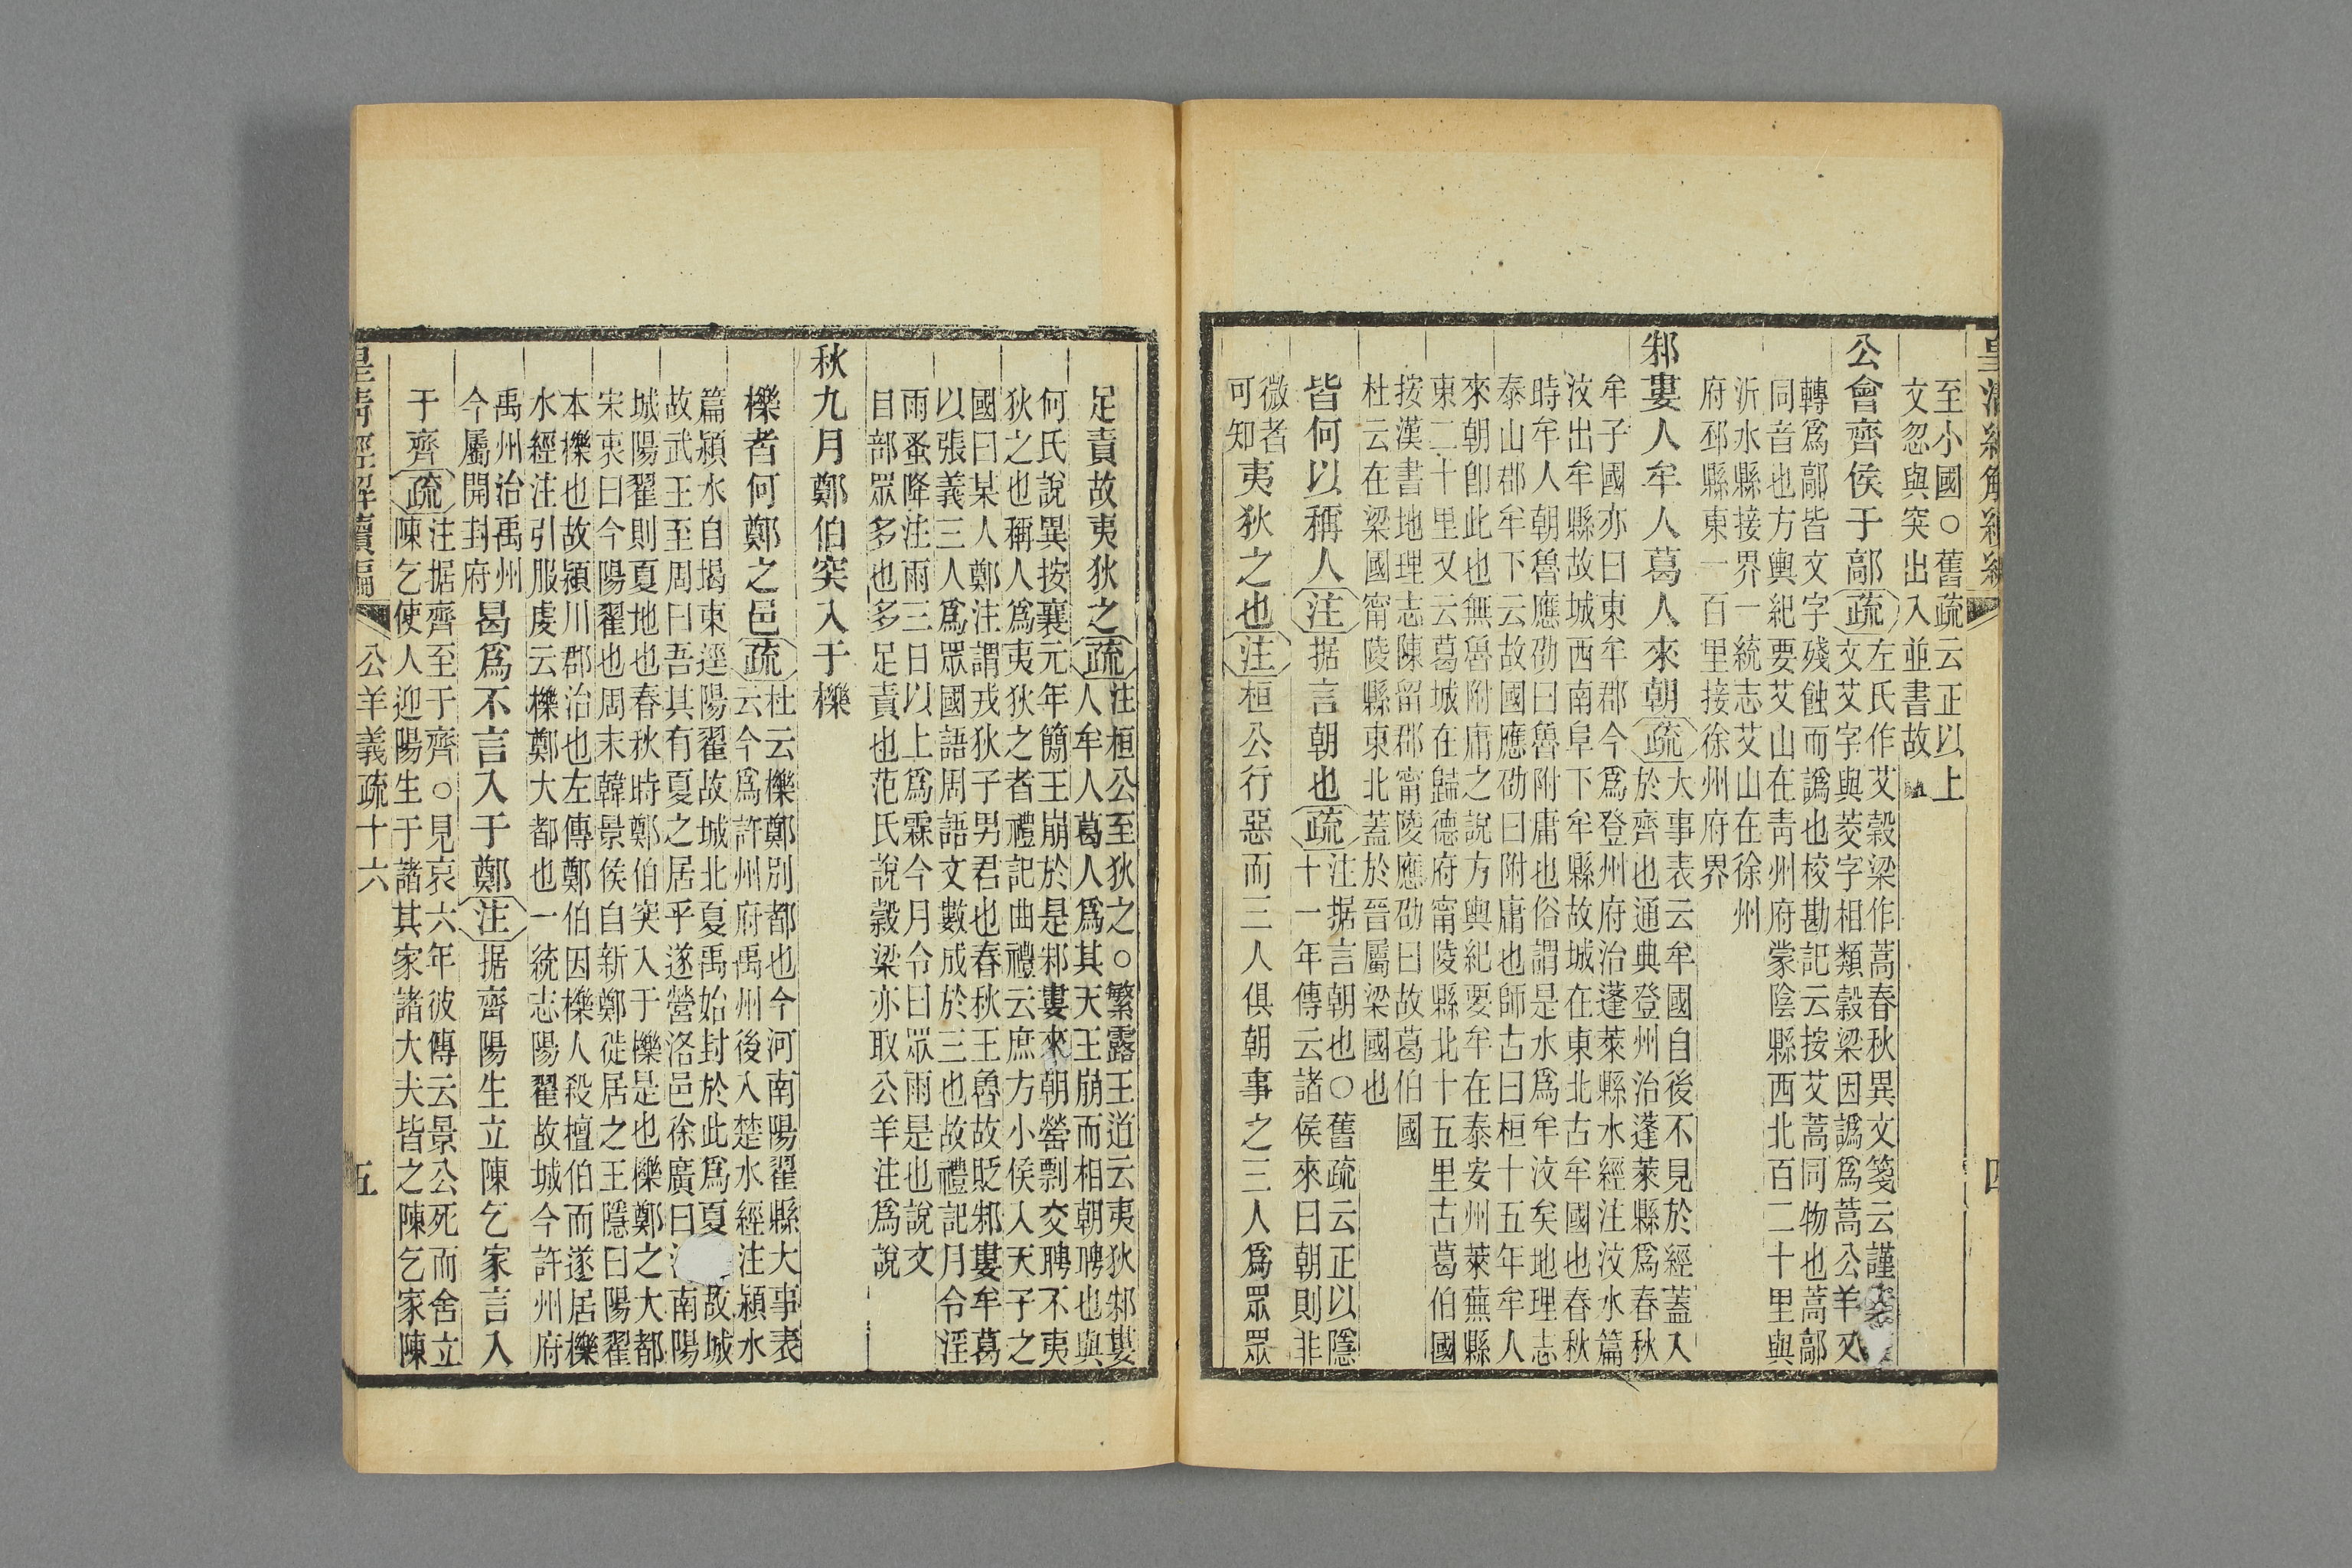 皇清經解續編
四
至小國○舊疏云正以上
文忽與突出入並書故
公會齊侯于鄗疏左氏作艾穀梁作蒿春秋異文箋云謹
文艾字與茭字相類穀梁因譌爲蒿公羊又
轉爲鄗皆文字殘蝕而譌也校勘記云按艾蒿同物也蒿鄗
同音也方輿紀要艾山在青州府蒙陰縣西北百二十里與
沂水縣接界一統志艾山在徐州
府邳縣東一百里接徐州府界
邾婁人牟人葛人來朝疏大事表云牟國自後不見於經蓋入
於齊也通典登州治蓬萊縣爲春秋
牟子國亦曰東牟郡今爲登州府治蓬萊縣水經注汶水篇
汶出牟縣故城西南阜下牟縣故城在東北古牟國也春秋
時牟人朝魯應劭曰魯附庸也俗謂是水爲牟汶矣地理志
泰山郡牟下云故國應劭曰附庸也師古曰桓十五年牟人
來朝卽此也無魯附庸之說方輿紀要牟在泰安州萊蕪縣
東二十里又云葛城在歸德府甯陵縣北十五里古葛伯國
按漢書地理志陳留郡甯陵應劭曰故葛伯國
杜云在梁國甯陵縣東北蓋於晉屬梁國也
皆何以稱人注据言朝也疏注据言朝也○舊疏云正以隱
十一年傳云諸侯來曰朝則非
微者
可知夷狄之也注桓公行惡而三人俱朝事之三人爲眾眾
足責故夷狄之疏注桓公至狄之○繁露王道云夷狄邾婁
人牟人葛人爲其天王崩而相朝聘也與
何氏說異按襄元年簡王崩於是邾婁來朝罃剽交聘不夷
狄之也稱人爲夷狄之者禮記曲禮云庶方小侯入天子之
國曰某人鄭注謂戎狄子男君也春秋王魯故貶邾婁牟葛
以張義三人爲眾國語周語文數成於三也故禮記月令淫
雨蚤降注雨三日以上爲霖今月令曰眾雨是也說文
目部眾多也多足責也范氏說穀梁亦取公羊注爲說
秋九月鄭伯突入于櫟
櫟者何鄭之邑疏杜云櫟鄭別都也今河南陽翟縣大事表
云今爲許州府禹州後入楚水經注潁水
篇潁水自堨東逕陽翟故城北夏禹始封於此爲夏故城
故武王至周曰吾其有夏之居乎遂營洛邑徐廣曰南陽
城陽翟則夏地也春秋時鄭伯突入于櫟是也櫟鄭之大都
宋衷曰今陽翟也周末韓景侯自新鄭徙居之王隱曰陽翟
本櫟也故潁川郡治也左傳鄭伯因櫟人殺檀伯而遂居櫟
水經注引服虔云櫟鄭大都也一統志陽翟故城今許州府
禹州治禹州
今屬開封府曷爲不言入于鄭注据齊陽生立陳乞家言入
于齊疏注据齊至于齊○見哀六年彼傳云景公死而舍立
陳乞使人迎陽生于諸其家諸大夫皆之陳乞家陳
皇清經解續編
公羊義疏十六
五